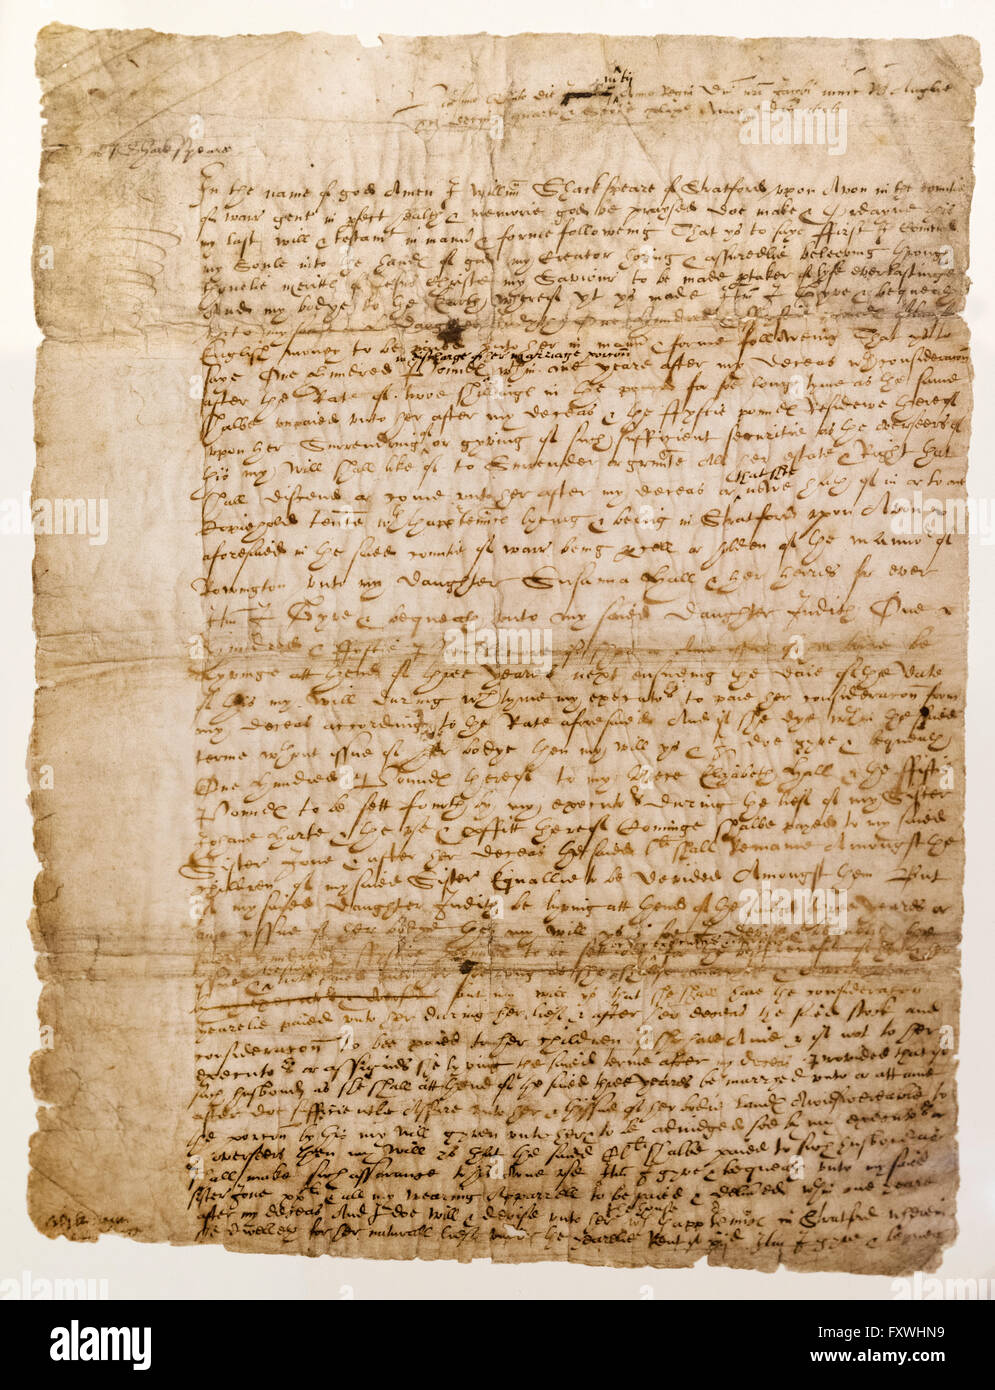 Vicesimo Quinto die Martij Anno Regni Dni nri Jacobi nunc Rx Anglie
decimo quarto & Scotie xlixo Annoq Dni 1616
Shackspeare
In the name of god Amen I William Shackspeare of Stratford upon Avon in the countie
of warr gent in pfect health & memorie god be praysed doe make & Ordayne this
my last will & testamt in manner & forme followeing That ys to saye ffirst I Comend
my Soule into the hands of god my Creator hoping & assuredlie beleeving through
thonelie merittes of Jesus Christe my Saviour to be made ptaker of lyfe everlastinge
And my bodye to the Earth whereof yt ys made Itm I Gyve & bequeath
unto my Daughter Judyth One Hundred & ffyftie pounds of lawfull
English money to be paied unto her in manner & forme followeing That ys to
saye One Hundred Poundes in discharge of her marriage porcion wthin one yeare after my deceas wth consideracion
after the Rate of twoe shillinges in the pound for soe long tyme as the same
shalbe unpaied unto her after my deceas & the ffyftie poundes Residewe thereof
upon her Surrendring of or gyving of such sufficient securitie as the overseers of
this my will shall like of to Surrender or graunte All her estate & Right that
shall discend or come unto her after my deceas or that shee nowe hath of in or to one
Copiehold tenemte wth thappurtenances lyeing & being in Stratford upon Avon
aforesaied in the saied countie of warr being pcell or holden of the mannor of
Rowington unto my daughter Susanna Hall & her heires for ever
Itm I Gyve & bequeath unto my saied Daughter Judith One
Hundred & ffyftie Poundes more if shee or Anie issue of her bodie be
Lyvinge att thend of three yeares next ensueing the daie of the date
of this my will during wch tyme my executors to paie her consideracion from
my deceas according to the Rate aforesaied And if she dye wthin the saied
terme wthout issue of her bodye then my will ys & I doe gyve & bequeath
One Hundred Poundes thereof to my Neece Elizabeth Hall & the ffiftie
Poundes to be sett fourth by my executors during the lief of my Sister
Johane Harte & the use & proffitt thereof Cominge shalbe payed to my saied
Sister Jone & after her deceas the saied L li shall Remaine Amongst the
children of my saied Sister Equallie to be devided Amongst them But
if my saied daughter Judith be lyving att thend of the saied three yeares or
anie yssue of her bodye then my will ys & soe I devise & bequeath the
saied Hundred & ffyftie poundes to be sett out by my executors & overseers for the best benefitt of her &
issue & the stock not to be paied unto her soe long as she shalbe marryed & covert baron
but my will ys that she shall have the consideracion
yearelie paied unto her during her lief & after her deceas the saied stock and
consideracion to bee paied to her children if she have Anie & if not to her
executors or assignes she lyving the saied terme after my deceas Provided that if
such husbond as she shall att thend of the saied three yeares be marryed unto or att anie
after doe sufficientlie Assure unto her & thissue of her bodie landes Awnswereable to
the porcion by this my will gyven unto her & to be adiudged soe by my executors &
overseers then my will ys that the said CL li shalbe paied to such husbond as
shall make such assurance to his owne use Itm I gyve & bequeath unto my saied
sister Jone xx li & all my wearing Apparrell to be paied & delivered wthin one yeare
after my deceas And I doe will & devise unto her the house wth thappurtenances in Stratford wherein
she dwelleth for her naturall lief under the yearelie Rent of xij d Itm I gyve & bequeath
alamy stock photo
FXWHN9
www.alamy.com